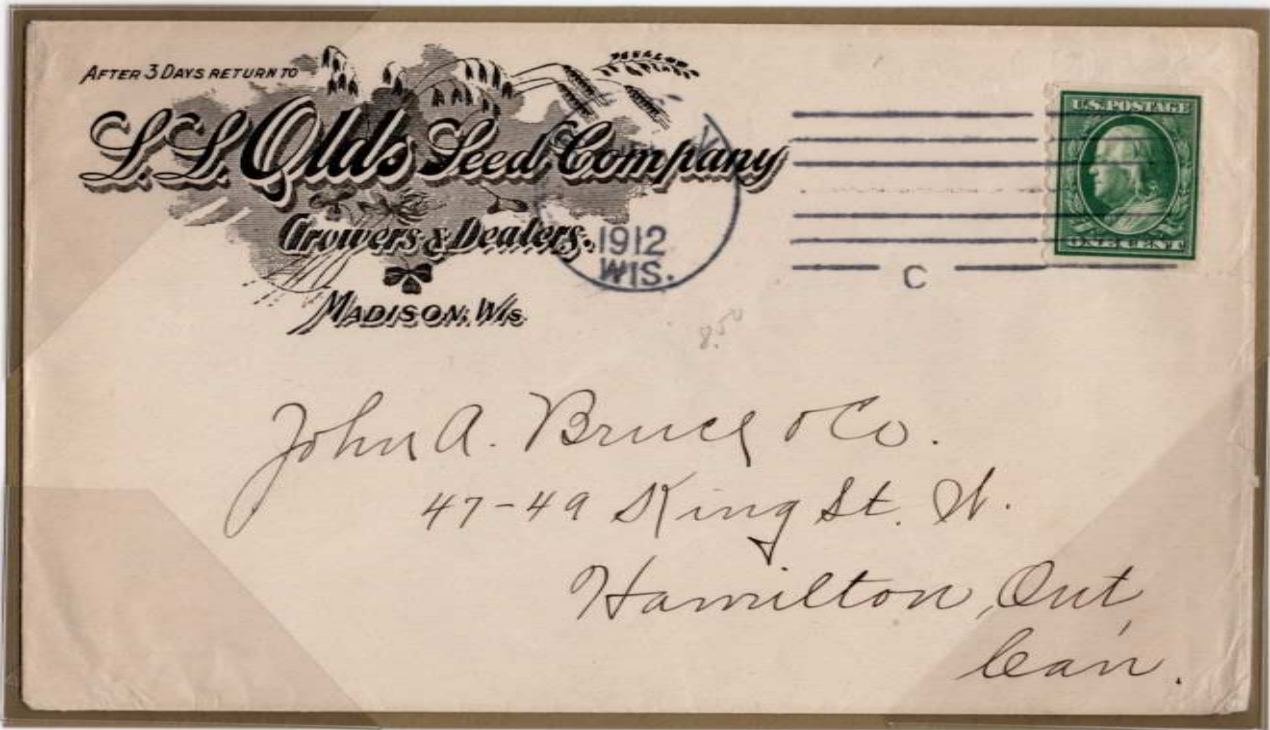 AFTER 3 DAYS RETURN TO
L.L. Olds Seed Company
Growers & Dealers.
MADISON, WIS.
1912
WIS.
C
U.S. POSTAGE
ONE CENT
8.50
John A. Bruce & Co.
47-49 King St. W.
Hamilton, Ont,
Can.